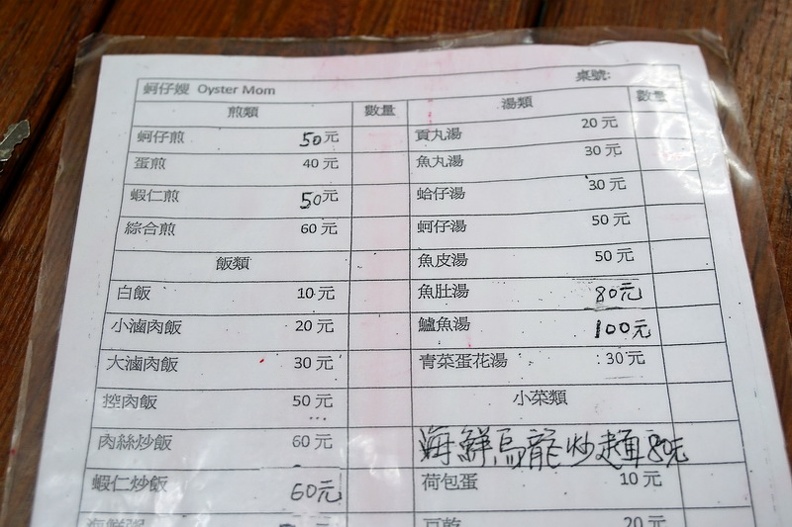 蚵仔嫂 Oyster Mom 桌號:
煎類 數量 湯類 數量
蚵仔煎 50元 貢丸湯 20元
蛋煎 40元 魚丸湯 30元
蝦仁煎 50元 蛤仔湯 30元
綜合煎 60元 蚵仔湯 50元
飯類 魚皮湯 50元
白飯 10元 魚肚湯 80元
小滷肉飯 20元 鱸魚湯 100元
大滷肉飯 30元 青菜蛋花湯 30元
控肉飯 50元 小菜類
肉絲炒飯 60元 海鮮烏龍炒麵 80元
蝦仁炒飯 60元 荷包蛋 10元
海鮮粥 豆乾 20元